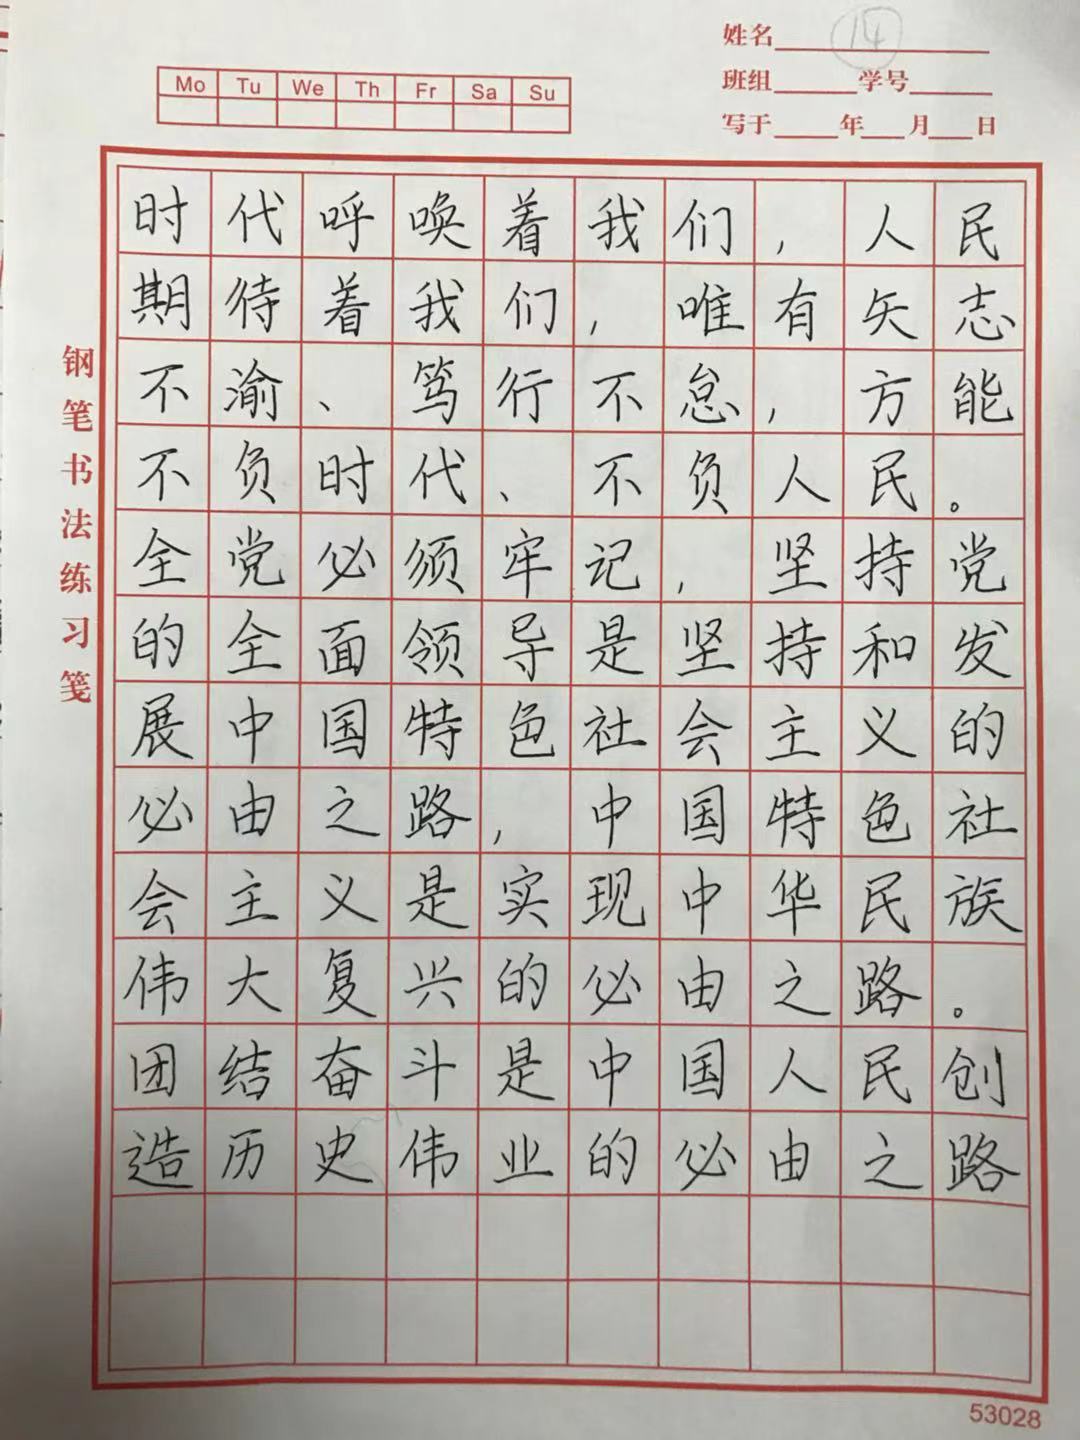 姓名 14
班组 学号
写于 年 月 日
Mo Tu We Th Fr Sa Su
钢笔书法练习笺
时代呼唤着我们，人民
期待着我们，唯有矢志
不渝、笃行不怠，方能
不负时代、不负人民。
全党必须牢记，坚持党
的全面领导是坚持和发
展中国特色社会主义的
必由之路，中国特色社
会主义是实现中华民族
伟大复兴的必由之路。
团结奋斗是中国人民创
造历史伟业的必由之路
53028